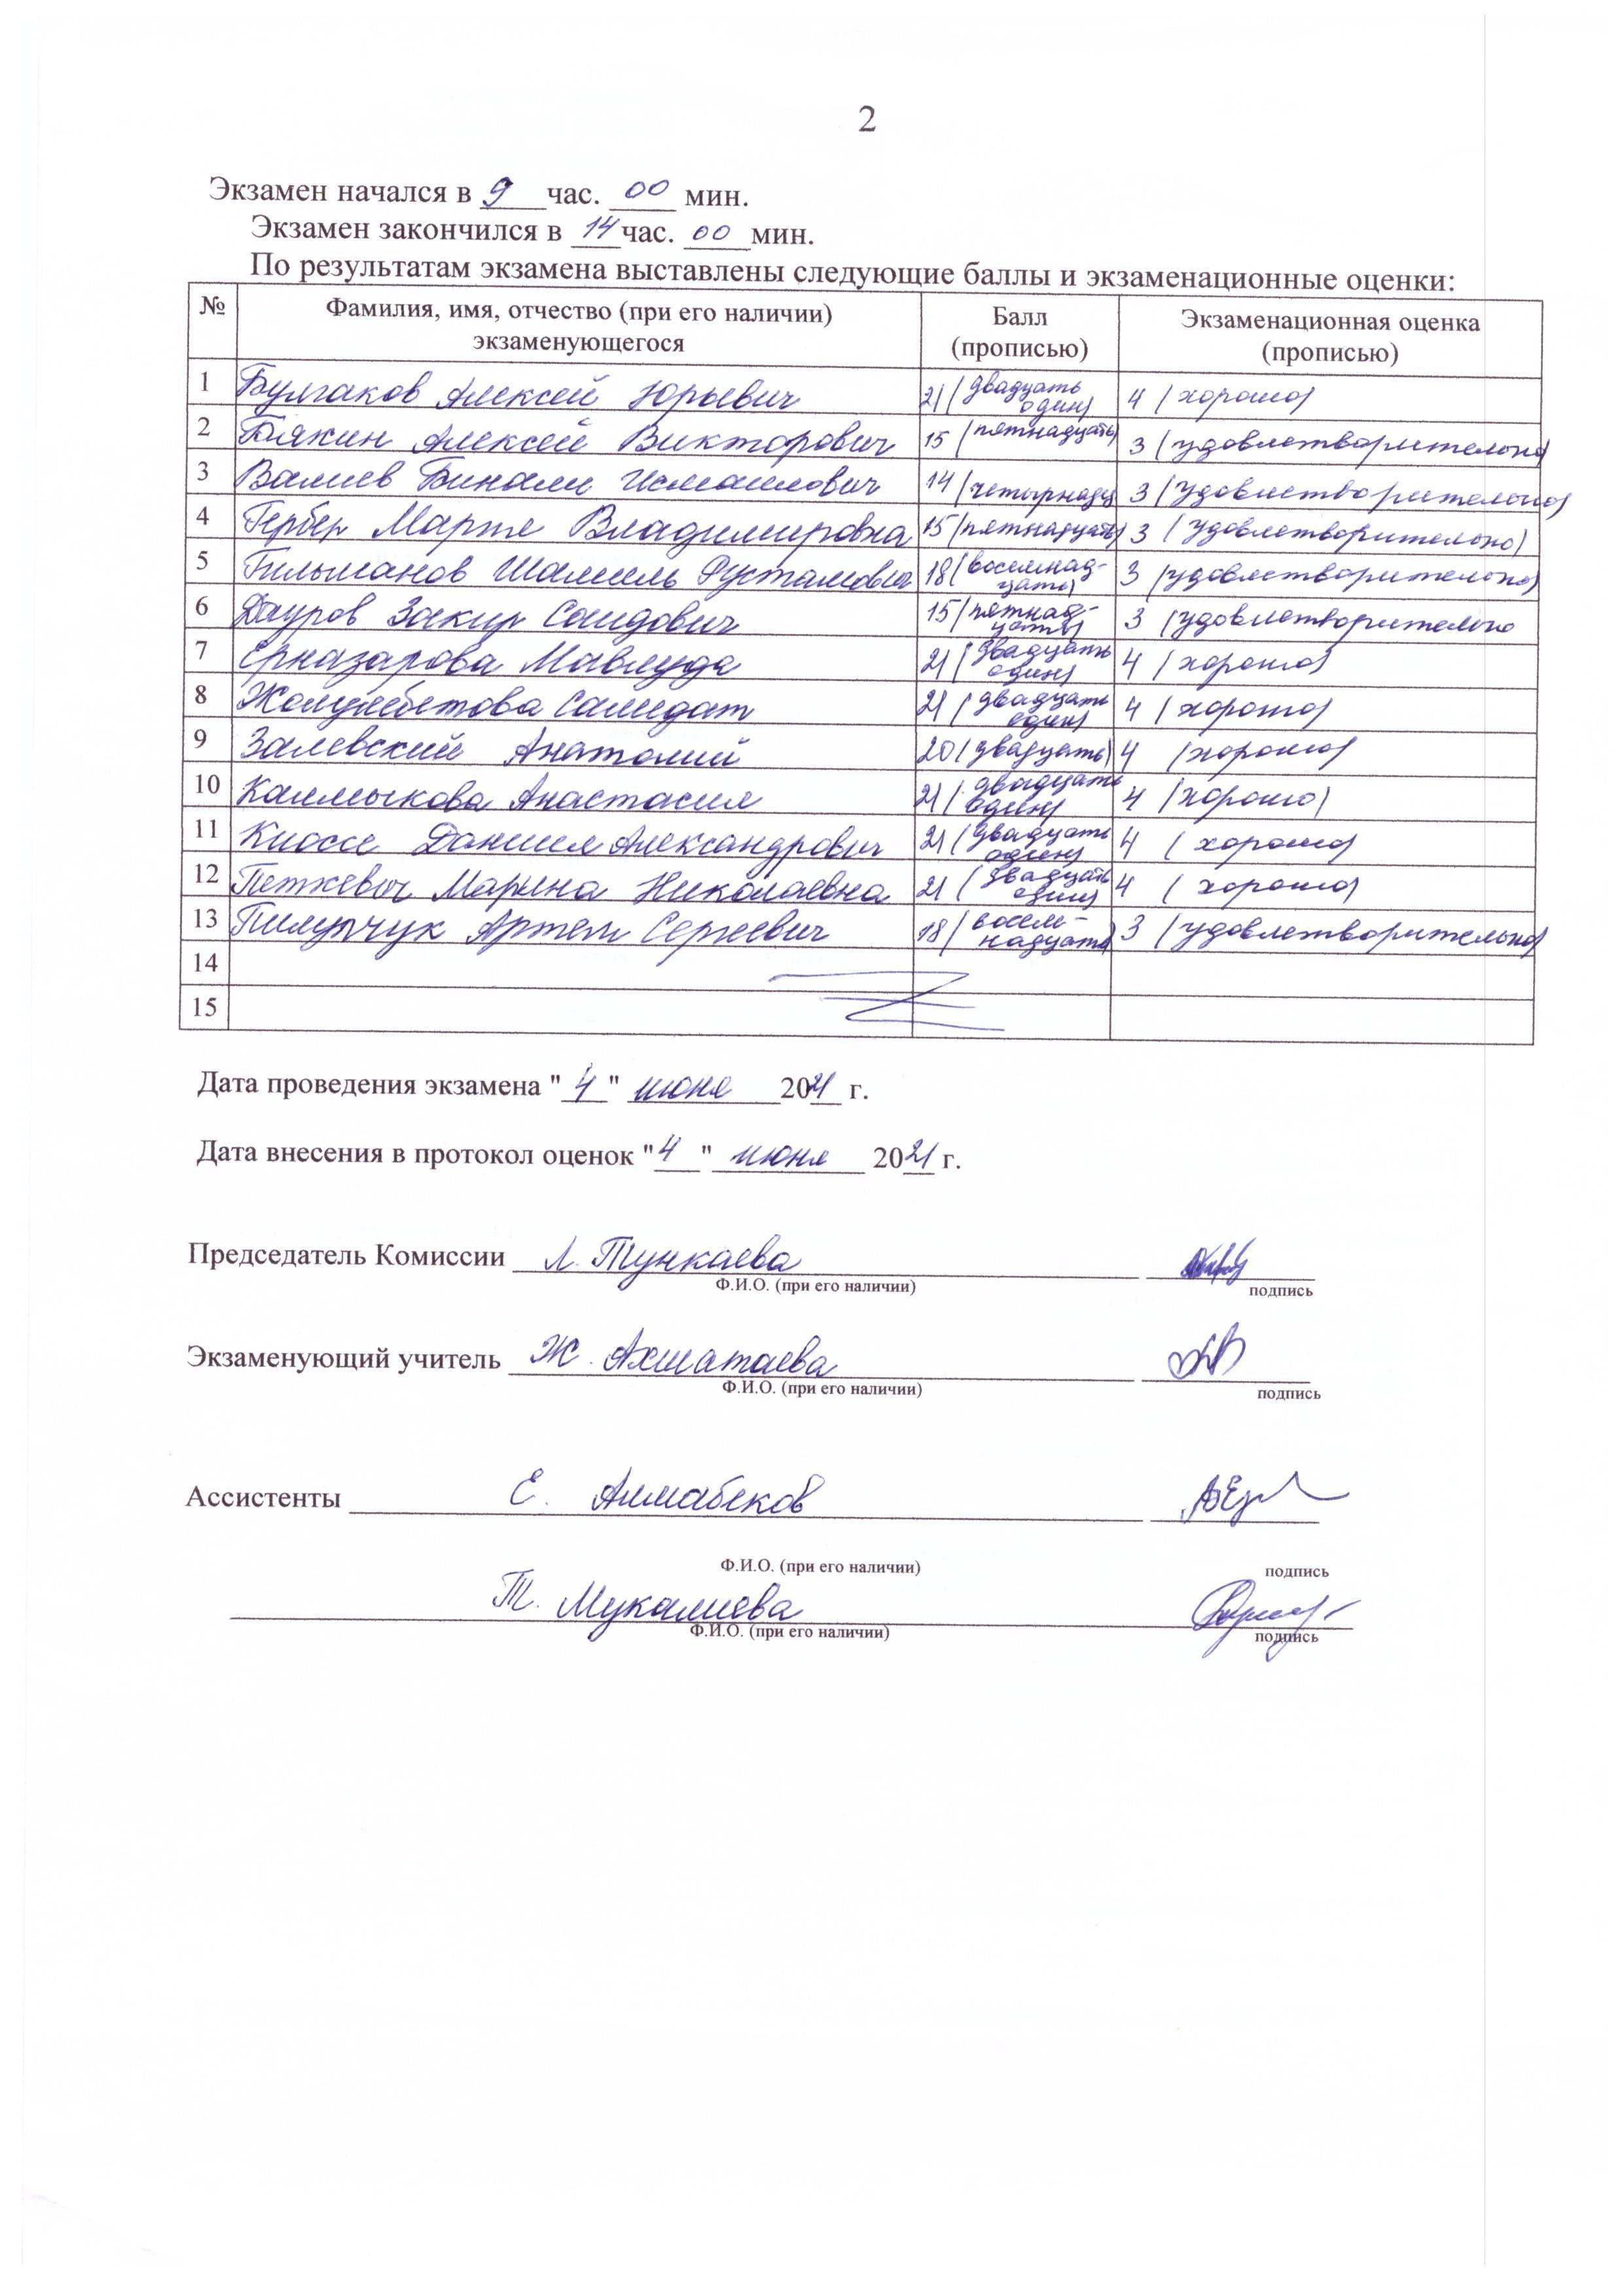 2
Экзамен начался в 9 час. 00 мин.
Экзамен закончился в 14 час. 00 мин.
По результатам экзамена выставлены следующие баллы и экзаменационные оценки:
№ Фамилия, имя, отчество (при его наличии) экзаменующегося Балл (прописью) Экзаменационная оценка (прописью)
1 Булгаков Алексей Юрьевич 21 (двадцать один) 4 (хорошо)
2 Бякин Алексей Викторович 15 (пятнадцать) 3 (удовлетворительно)
3 Валиев Бинали Исмаилович 14 (четырнадц 3 (удовлетворительно)
4 Гербер Марта Владимировна 15 (пятнадцать) 3 (удовлетворительно)
5 Гильманов Шамиль 18 (восемнад-цать) 3 (удовлетворительно)
6 Дауров Закир Саидович 15 (пятнад-цать) 3 (удовлетворительно
7 Ерназарова Мавлуда 21 (двадцать один) 4 (хорошо)
8 21 (двадцать один) 4 (хорошо)
9 Залевский Анатолий 20 (двадцать) 4 (хорошо)
10 Калмыкова Анастасия 21 (двадцать один) 4 (хорошо)
11 Киоссе Даниил Александрович 21 (двадцать один) 4 (хорошо)
12 Петкевич Марина Николаевна 21 (двадцать один) 4 (хорошо)
13 Пилипчук Артем Сергеевич 18 (восем-надцать) 3 (удовлетворительно)
14
15
Дата проведения экзамена "4" июня 2021 г.
Дата внесения в протокол оценок "4" июня 2021 г.
Председатель Комиссии Л. Тункаева
Ф.И.О. (при его наличии) подпись
Экзаменующий учитель Ж. Ахматаева
Ф.И.О. (при его наличии) подпись
Ассистенты Е. Алмабеков
Ф.И.О. (при его наличии) подпись
Т. Мукалиева
Ф.И.О. (при его наличии) подпись